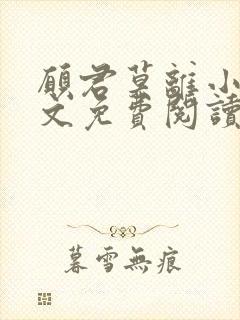 願君莫離小
文免費閱讀
暮雪無痕